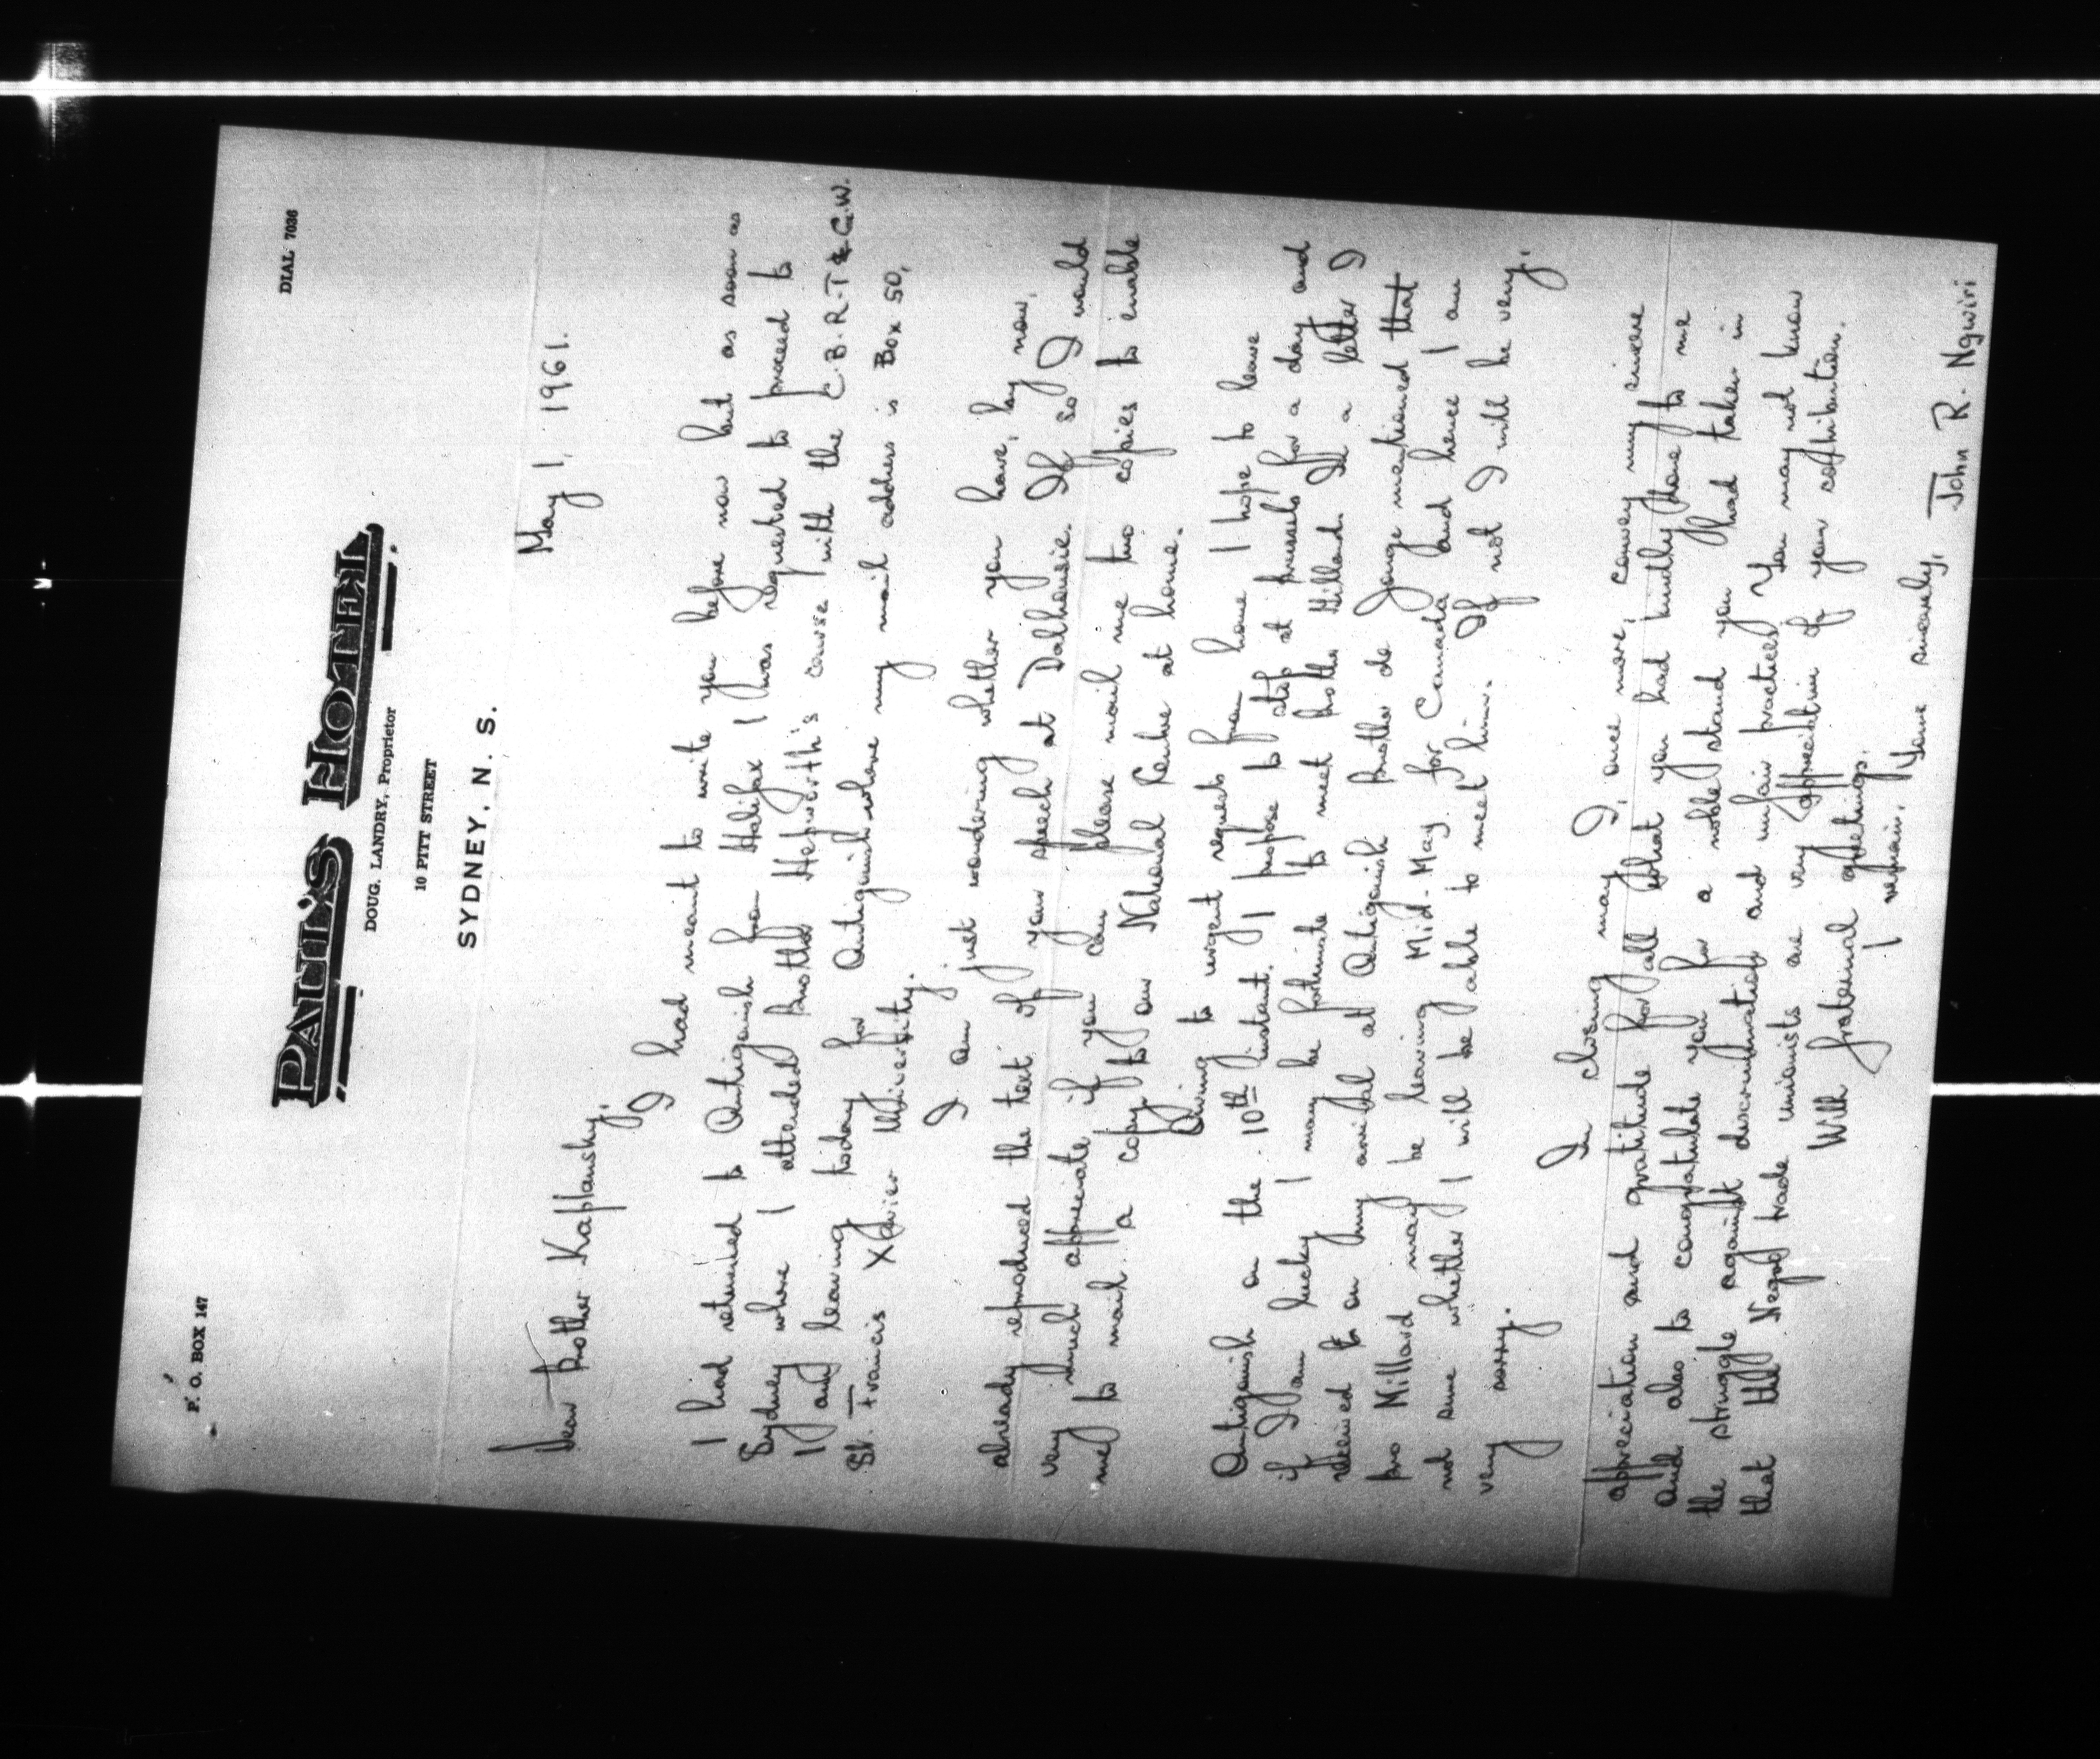 P. O. BOX 147
DIAL 7036
PAUL'S HOTEL
DOUG. LANDRY, Proprietor
10 PITT STREET
SYDNEY, N. S.
May 1, 1961.
Dear Brother Kaplansky,
I had meant to write you before now but as soon as
I had returned to Antigonish from Halifax I was requested to proceed to
Sydney where I attended Brother Hepworth's course with the C.B.R.T & G.W.
I am leaving today for Antigonish where my mail address is Box 50,
St. Francis Xavier University.
I am just wondering whether you have, by now,
already reproduced the text of your speech at Dalhousie. If so I would
very much appreciate if you can please mail me two copies to enable
me to mail a copy to our National Centre at home.
Owing to urgent request from home I hope to leave
Antigonish on the 10th instant. I propose to stop at Brussels for a day and
if I am lucky I may be fortunate to meet Brother Millard. In a letter I
received on my arrival at Antigonish Brother de Jonge mentioned that
Bro Millard may be leaving Mid-May for Canada and hence I am
not sure whether I will be able to meet him. If not I will be very,
very sorry.
In closing may I, once more, convey my sincere
appreciation and gratitude for all what you had kindly done to me
and also to congratulate you for a noble stand you had taken in
the struggle against discrimination and unfair practices. You may not know
that the Negro trade unionists are very appreciative of your contribution.
With fraternal greetings.
I remain, Yours sincerely,
John R. Ngwiri